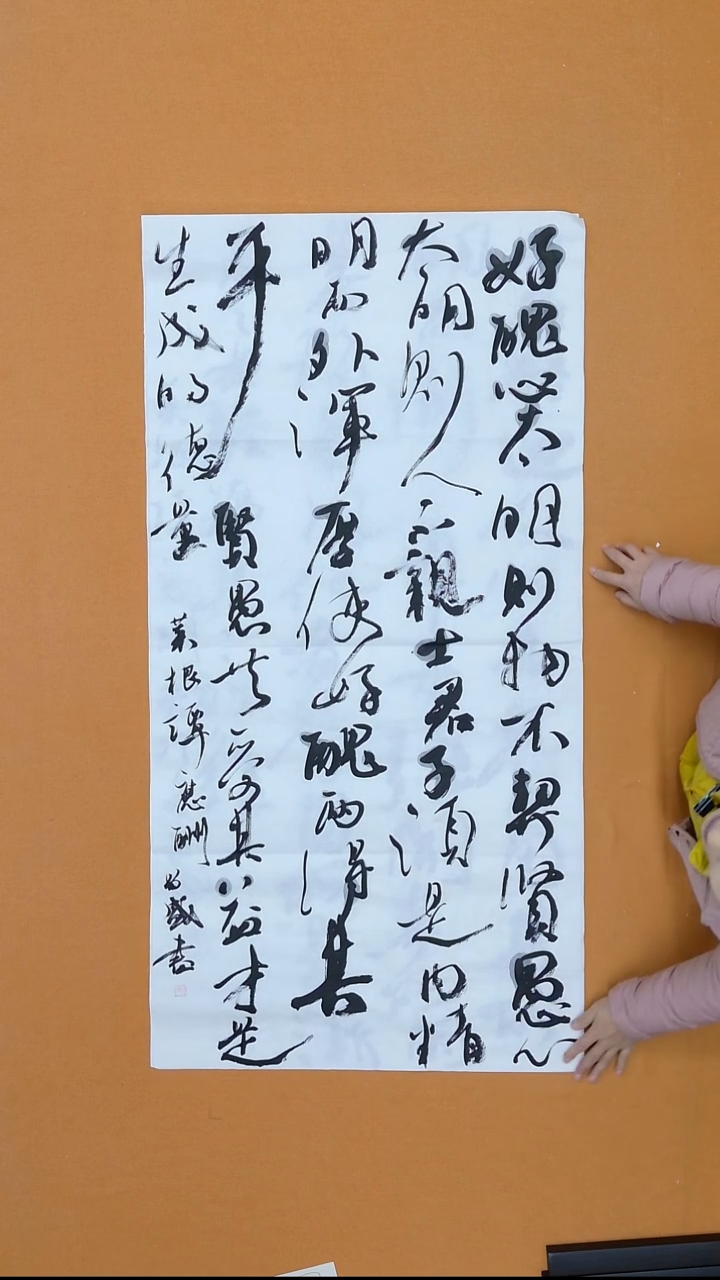 好醜心太明則物不契賢愚心
太明則人不親士君子須是内精
明而外渾厚使好醜兩得其
平賢愚共受其益才是
生成的德量 菜根譚 應酬 盛書